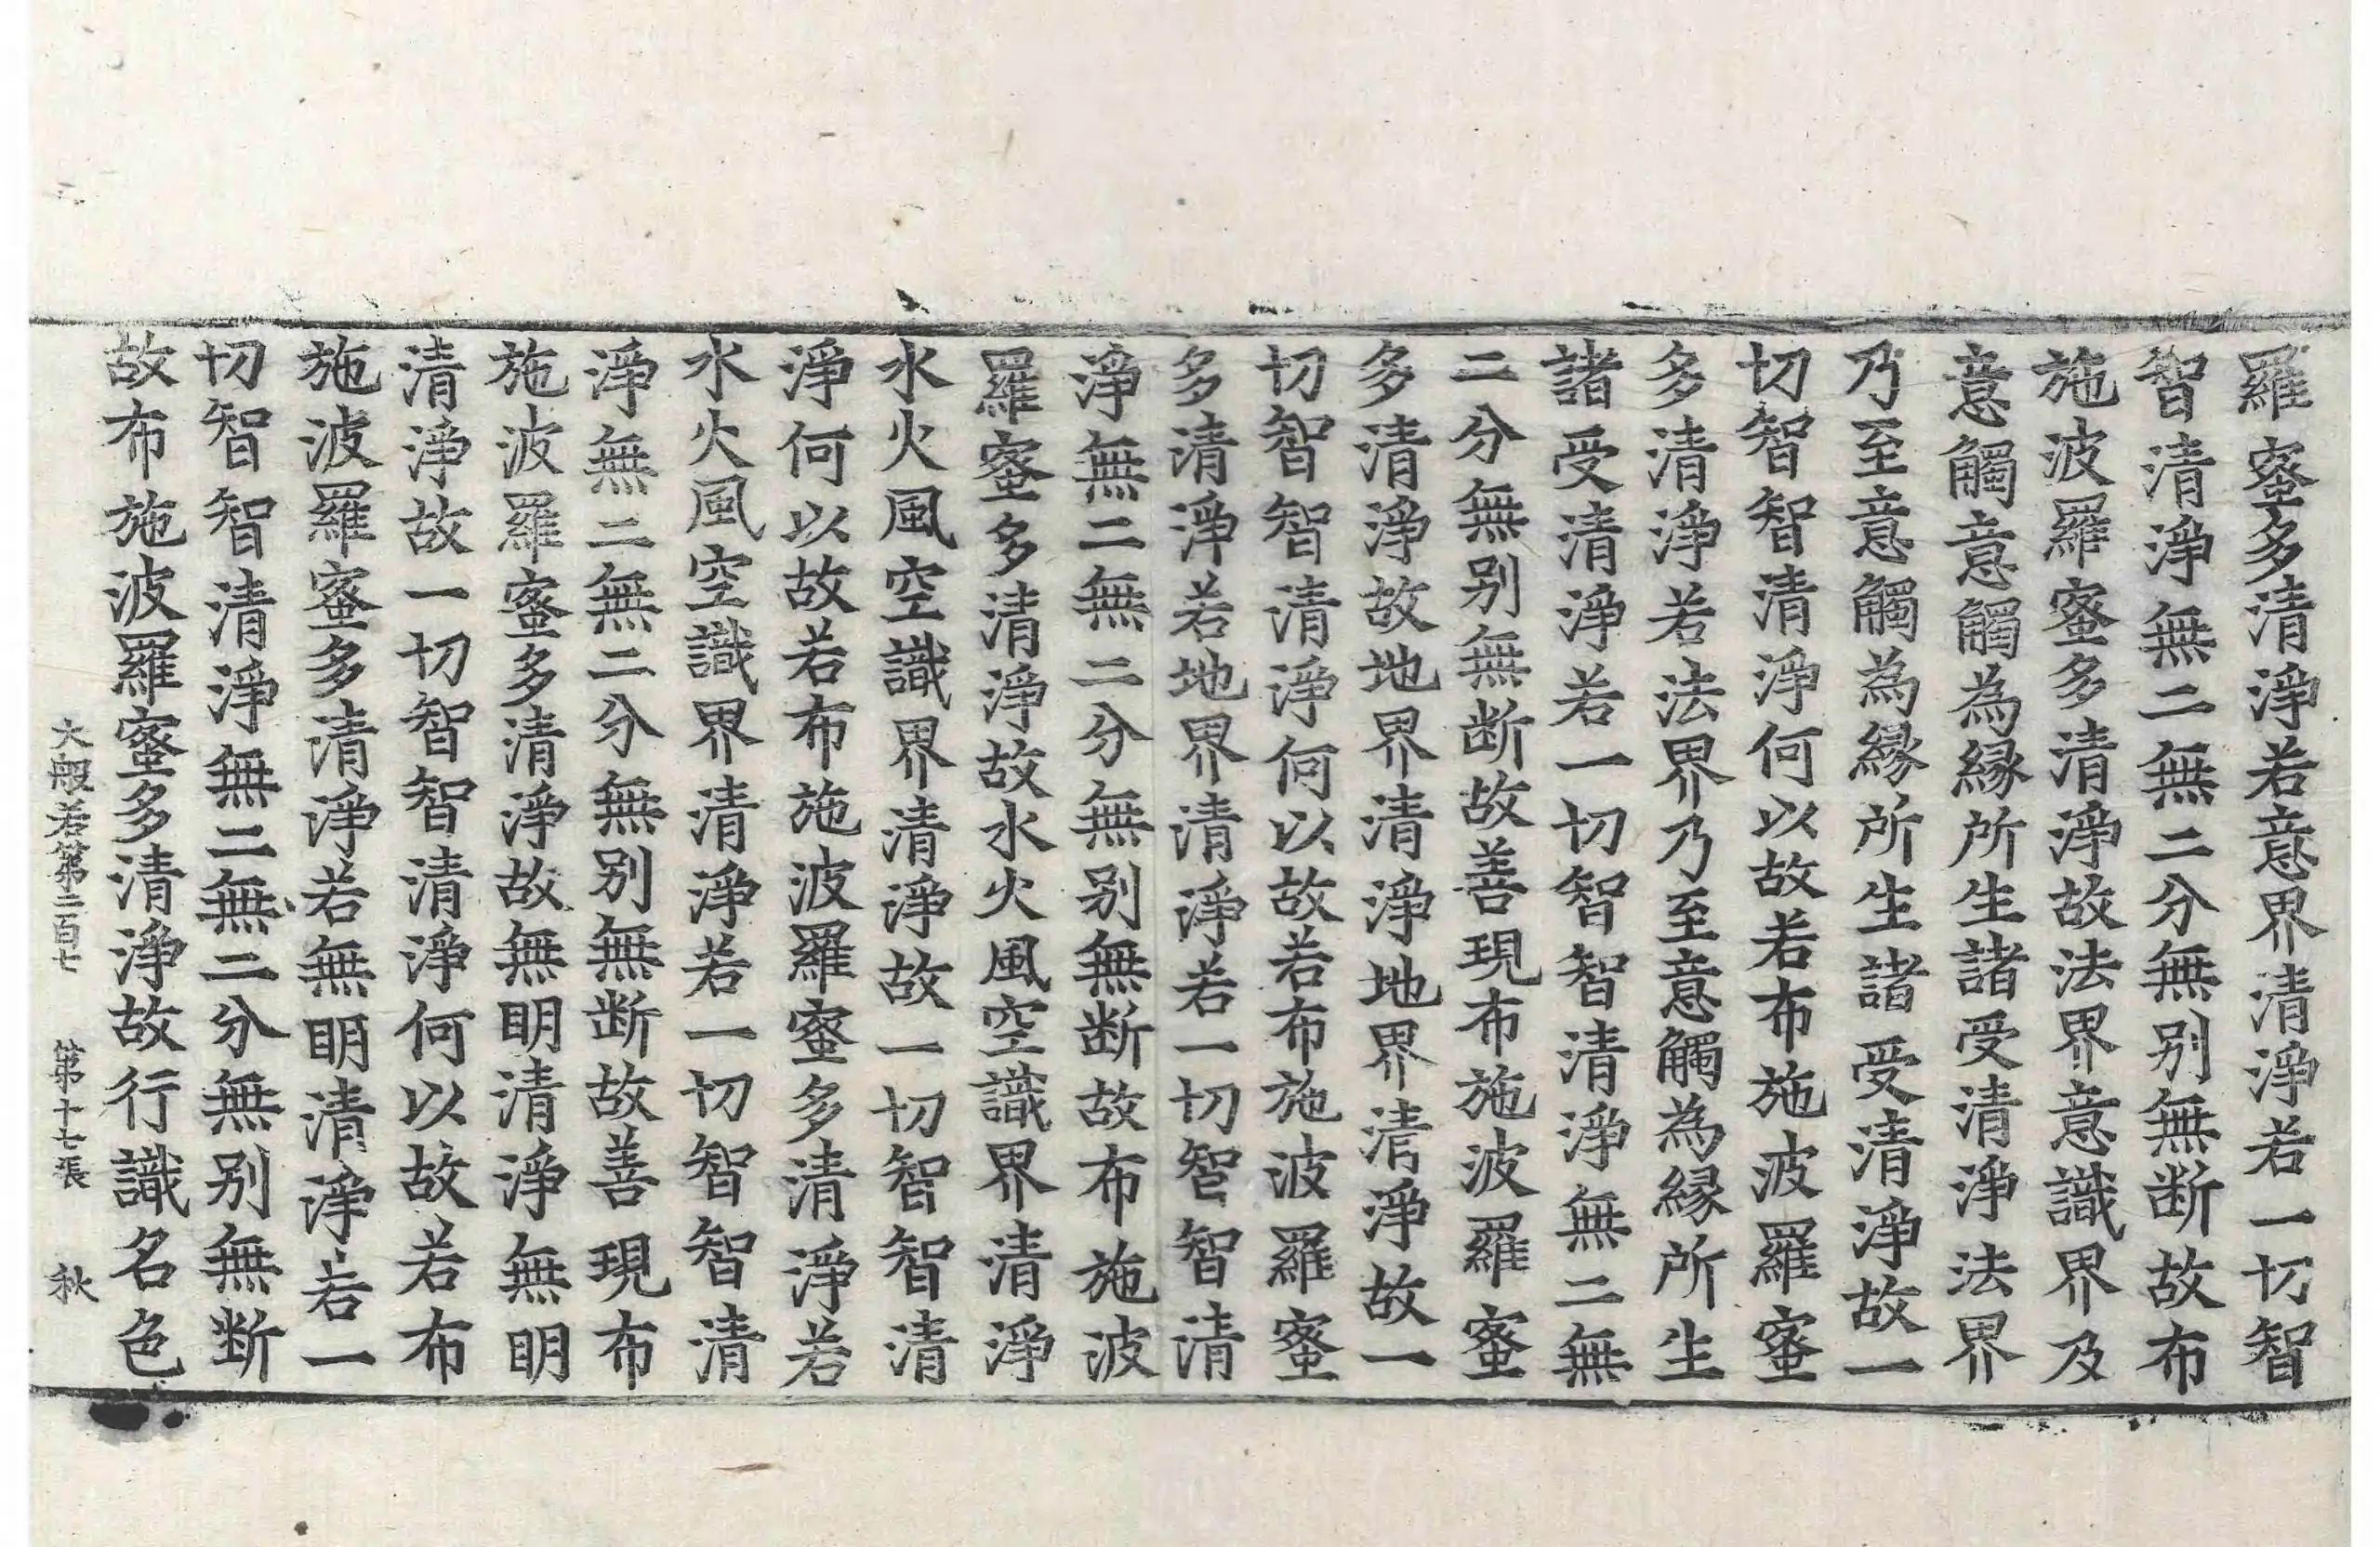 羅蜜多清淨若意界清淨若一切智
智清淨無二無二分無别無断故布
施波羅蜜多清淨故法界意識界及
意觸意觸為縁所生諸受清淨法界
乃至意觸為縁所生諸受清淨故一
切智智清淨何以故若布施波羅蜜
多清淨若法界乃至意觸為縁所生
諸受清淨若一切智智清淨無二無
二分無别無断故善現布施波羅蜜
多清淨故地界清淨地界清淨故一
切智智清淨何以故若布施波羅蜜
多清淨若地界清淨若一切智智清
淨無二無二分無别無断故布施波
羅蜜多清淨故水火風空識界清淨
水火風空識界清淨故一切智智清
淨何以故若布施波羅蜜多清淨若
水火風空識界清淨若一切智智清
淨無二無二分無别無断故善現布
施波羅蜜多清淨故無明清淨無明
清淨故一切智智清淨何以故若布
施波羅蜜多清淨若無明清淨若一
切智智清淨無二無二分無别無断
故布施波羅蜜多清淨故行識名色
大般若第二百七 第十七張 秋